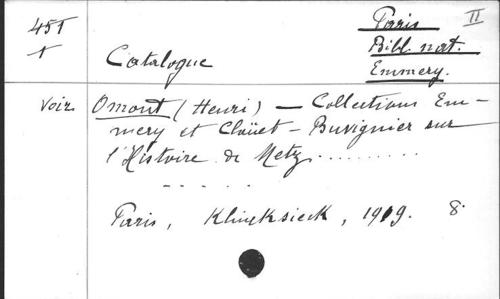 451
1
Paris II
Bibl. nat.
Emmery.
Catalogue
Voir Omont (Henri) — Collections Em-
mery et Cloüet - Buvignier sur
l'Histoire de Metz .........
- - - - -
Paris, Klincksieck, 1909. 8°